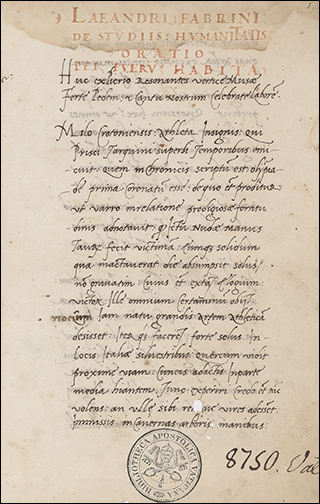 LAEANDRI FABRINI
DE STUDIIS HUMANITATIS
ORATIO
PER PUERUM HABITA
Huc ex Resonantes vertice Musae
Ferte Pedem, & Cantu Nostrum Celebrate laborem.
Milo Crotoniensis Athleta Insignis, qui
Prisci Tarquini superbi Temporibus emi
cuit quem in chronicis scriptum est olympia
de prima coronatum esse: de quo et proditum
ut varro in relatione prodigiosae fortitu
dinis adnotavit, q̃ Ictu Nudae Manus
Taurum fecit victima: Eumqz solidum
qua mactaverat die absumpsit solus
nõ gravatim Civius et extat Elogium
victor Ille omnium Certaminũ obij
Iam natu grandis Artem Athleticã
desisset: Iterqz faceret forte solus In
locis Italiae silvestribus quercum vidit
proxime viam Cuneis adactis in parte
media hiantem. Tunc experiri Credo et tũc
volens. an ullae sibi vires adessent
Immissis in Cavernas arboris manibus
8750.
BIBLIOTHECA APOSTOLICA VATICANA